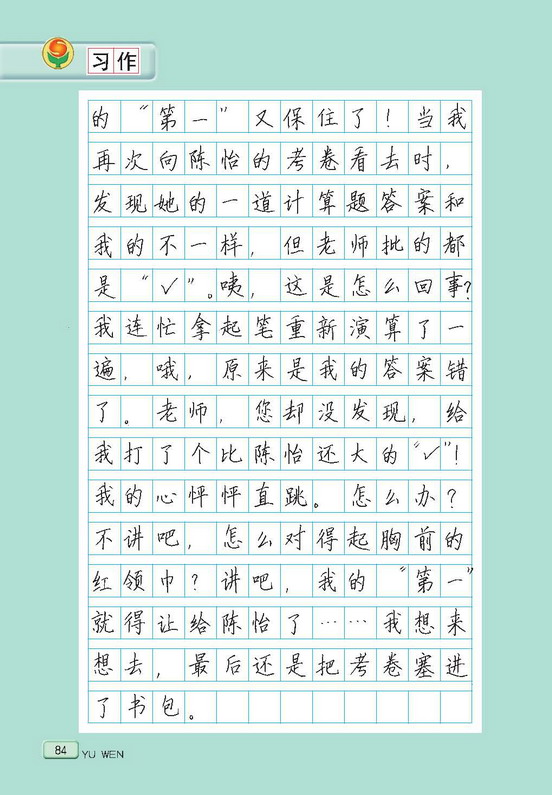 习作
的“第一”又保住了！当我
再次向陈怡的考卷看去时，
发现她的一道计算题答案和
我的不一样，但老师批的都
是“✓”。咦，这是怎么回事？
我连忙拿起笔重新演算了一
遍，哦，原来是我的答案错
了。老师，您却没发现，给
我打了个比陈怡还大的“✓”！
我的心怦怦直跳。怎么办？
不讲吧，怎么对得起胸前的
红领巾？讲吧，我的“第一”
就得让给陈怡了……我想来
想去，最后还是把考卷塞进
了书包。
84 YU WEN